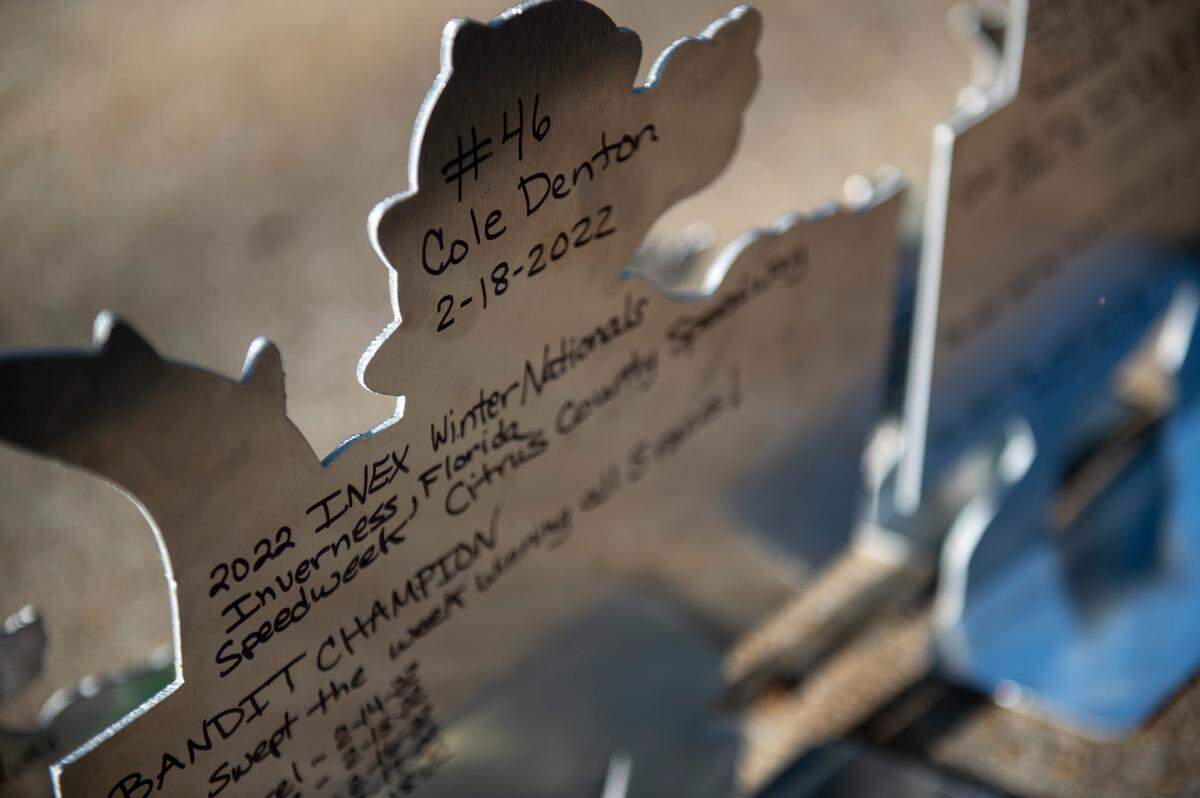 #46
Cole Denton
2-18-2022
2022 INEX WinterNationals
Inverness, Florida
Speedweek Citrus County Speedway
BANDIT CHAMPION
Swept the week winning all 5 races!
- 2-14-22